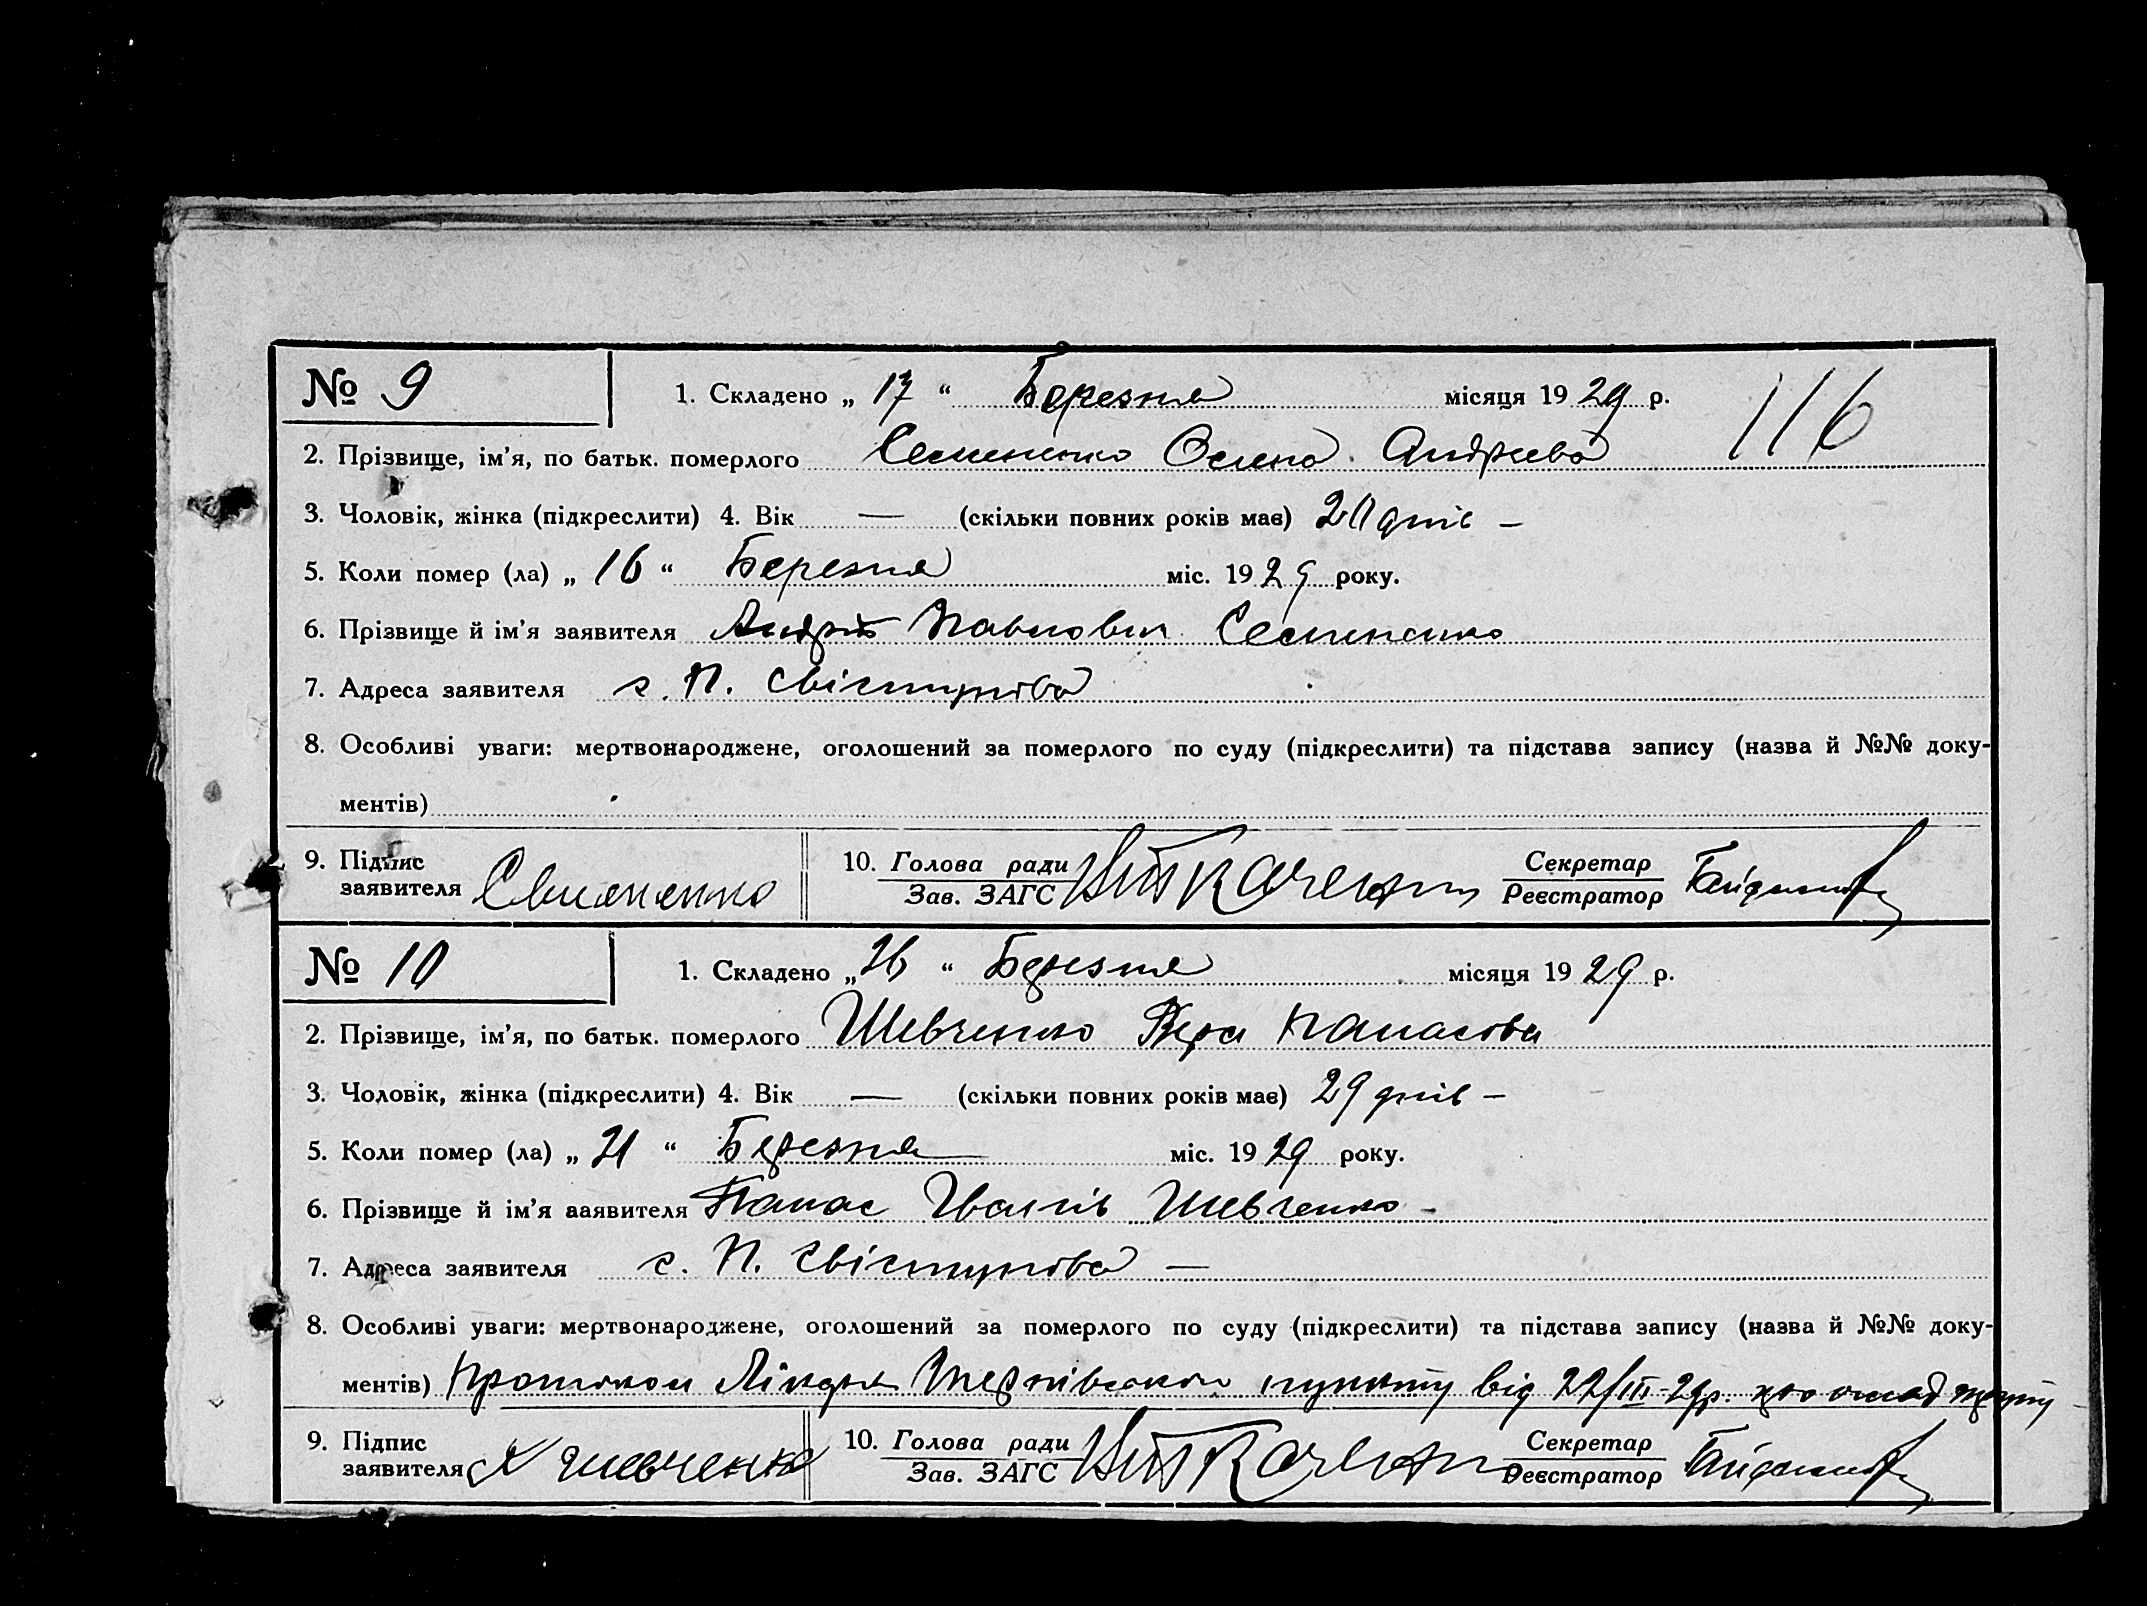 № 9 1. Складено „ 17 “ Березня місяця 19 29 р. 116
2. Прізвище, ім’я, по батьк. померлого Семененко Олена Андреева
3. Чоловік, жінка (підкреслити) 4. Вік — (скільки повних років має) днів —
5. Коли помер (ла) „ 16 “ Березня міс. 19 29 року.
6. Прізвище й ім’я заявителя Андрій Павлович Семененко
7. Адреса заявителя с. П. Свістунова
8. Особливі уваги: мертвонароджене, оголошений за померлого по суду (підкреслити) та підстава запису (назва й №№ доку-
ментів)
9. Підпис заявителя Семененко 10. Голова ради Секретар
Зав. ЗАГС Реєстратор
№ 10 1. Складено „ 26 “ Березня місяця 19 29 р.
2. Прізвище, ім’я, по батьк. померлого Шевченко Вера Панасова
3. Чоловік, жінка (підкреслити) 4. Вік — (скільки повних років має) 29 днів —
5. Коли помер (ла) „ 21 “ Березня міс. 19 29 року.
6. Прізвище й ім’я ааявителя Панас Іванів Шевченко -
7. Адреса заявителя с. П. Свістунова —
8. Особливі уваги: мертвонароджене, оголошений за померлого по суду (підкреслити) та підстава запису (назва й №№ доку-
ментів) Протокол пункту від 22/III-29р.
9. Підпис заявителя Шевченко 10. Голова ради Секретар
Зав. ЗАГС Реєстратор